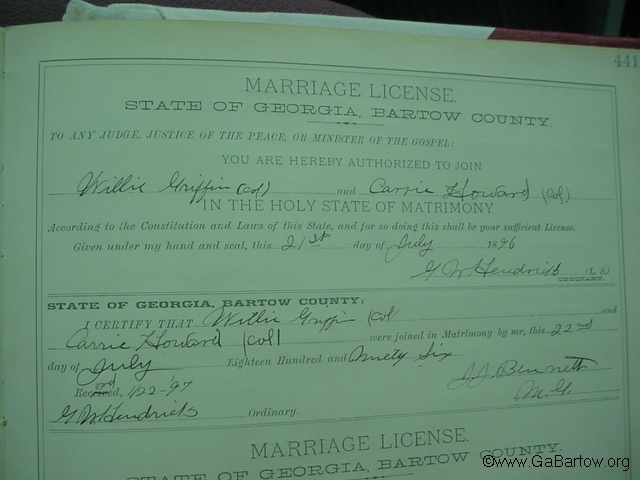 441
MARRIAGE LICENSE.
STATE OF GEORGIA, BARTOW COUNTY.
TO ANY JUDGE, JUSTICE OF THE PEACE, OR MINISTER OF THE GOSPEL:
YOU ARE HEREBY AUTHORIZED TO JOIN
Willie Griffin (col) and Carrie Howard (Col)
IN THE HOLY STATE OF MATRIMONY
According to the Constitution and Laws of this State, and for so doing this shall be your sufficient License.
Given under my hand and seal, this 21st day of July 1896
G W Hendricks (L. S.)
ORDINARY.
STATE OF GEORGIA, BARTOW COUNTY:
I CERTIFY THAT Willie Griffin (Col and
Carrie Howard (Col) were joined in Matrimony by me, this 22nd
day of July Eighteen Hundred and Ninety Six
J.J. Bennett
M.G.
1/22-97
G W Hendricks Ordinary.
MARRIAGE LICENSE.
STATE OF GEORGIA, BARTOW COUNTY.
©www.GaBartow.org